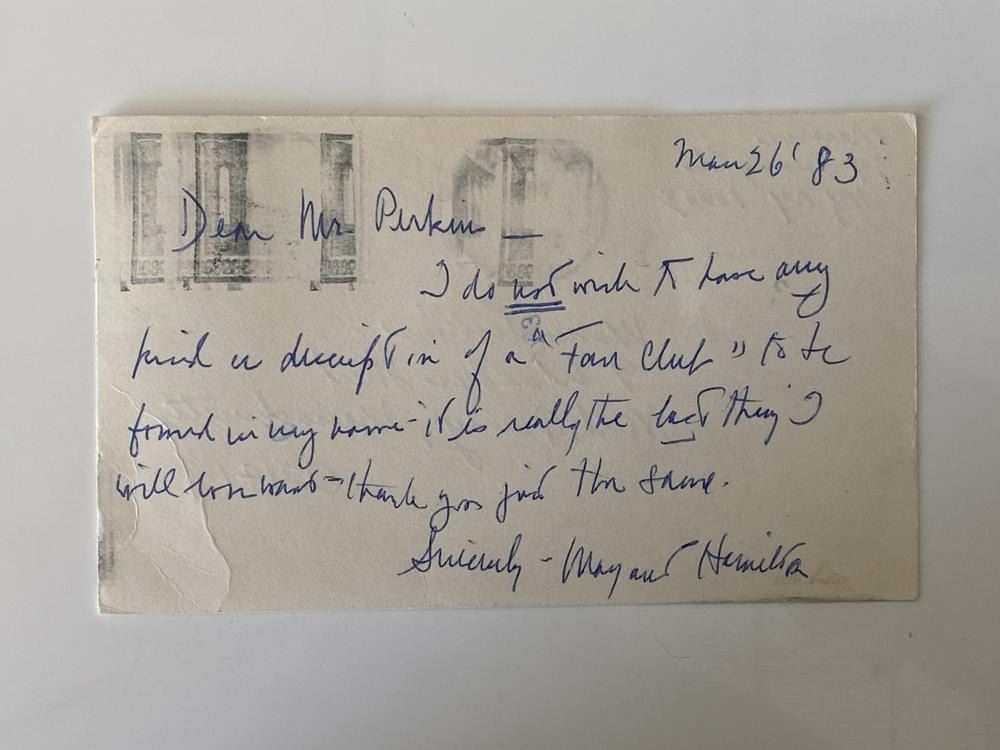 Mar 26 '83
Dear Mr Perkins —
I do not wish to have any
kind or description of a "Fan Club" to be
formed in my name - it is really the last thing I
will want - thank you just the same.
Sincerely - Margaret Hamilton